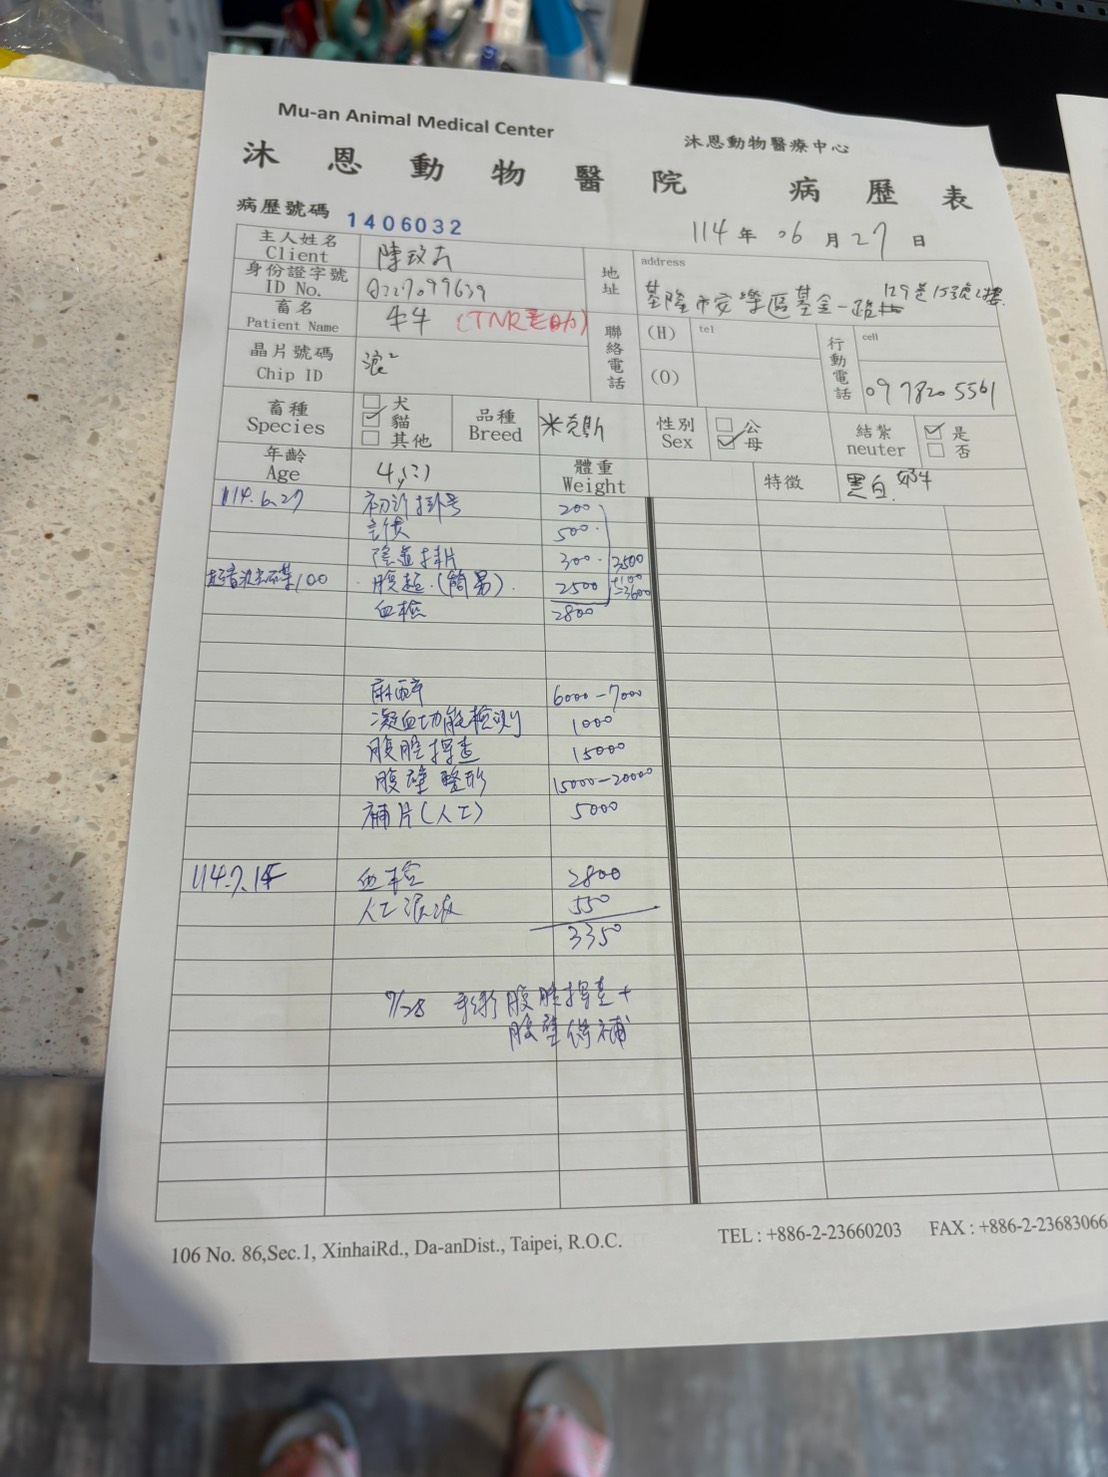 Mu-an Animal Medical Center
沐恩動物醫療中心
沐恩動物醫院 病歷表
病歷號碼 1406032
114年06月27日
主人姓名 Client 陳玫
身份證字號 ID No. Q227099639
地址 address 基隆市安樂區基金一路129巷15號2樓
畜名 Patient Name 牛牛 (TNR
聯絡電話 (H) tel
(O)
行動電話 cell 09 7820 5561
晶片號碼 Chip ID 浪
畜種 Species 犬 貓 其他
品種 Breed 米克斯
性別 Sex 公 母
結紮 neuter 是 否
年齡 Age 4y(?)
體重 Weight
特徵 黑白
114.6.27 初診掛号 200
500
陰道抹片 300 3500
100 腹超(簡易) 2500 +100 =3600
血檢 2800
麻醉 6000-7000
凝血功能檢測 1000
腹腔探查 15000
腹壁整形 15000-20000
補片(人工) 5000
114.7.15 血檢 2800
人工淚液 550
3350
7/28 手術腹腔探查+
腹壁修補
106 No. 86,Sec.1, XinhaiRd., Da-anDist., Taipei, R.O.C.
TEL : +886-2-23660203 FAX : +886-2-23683066